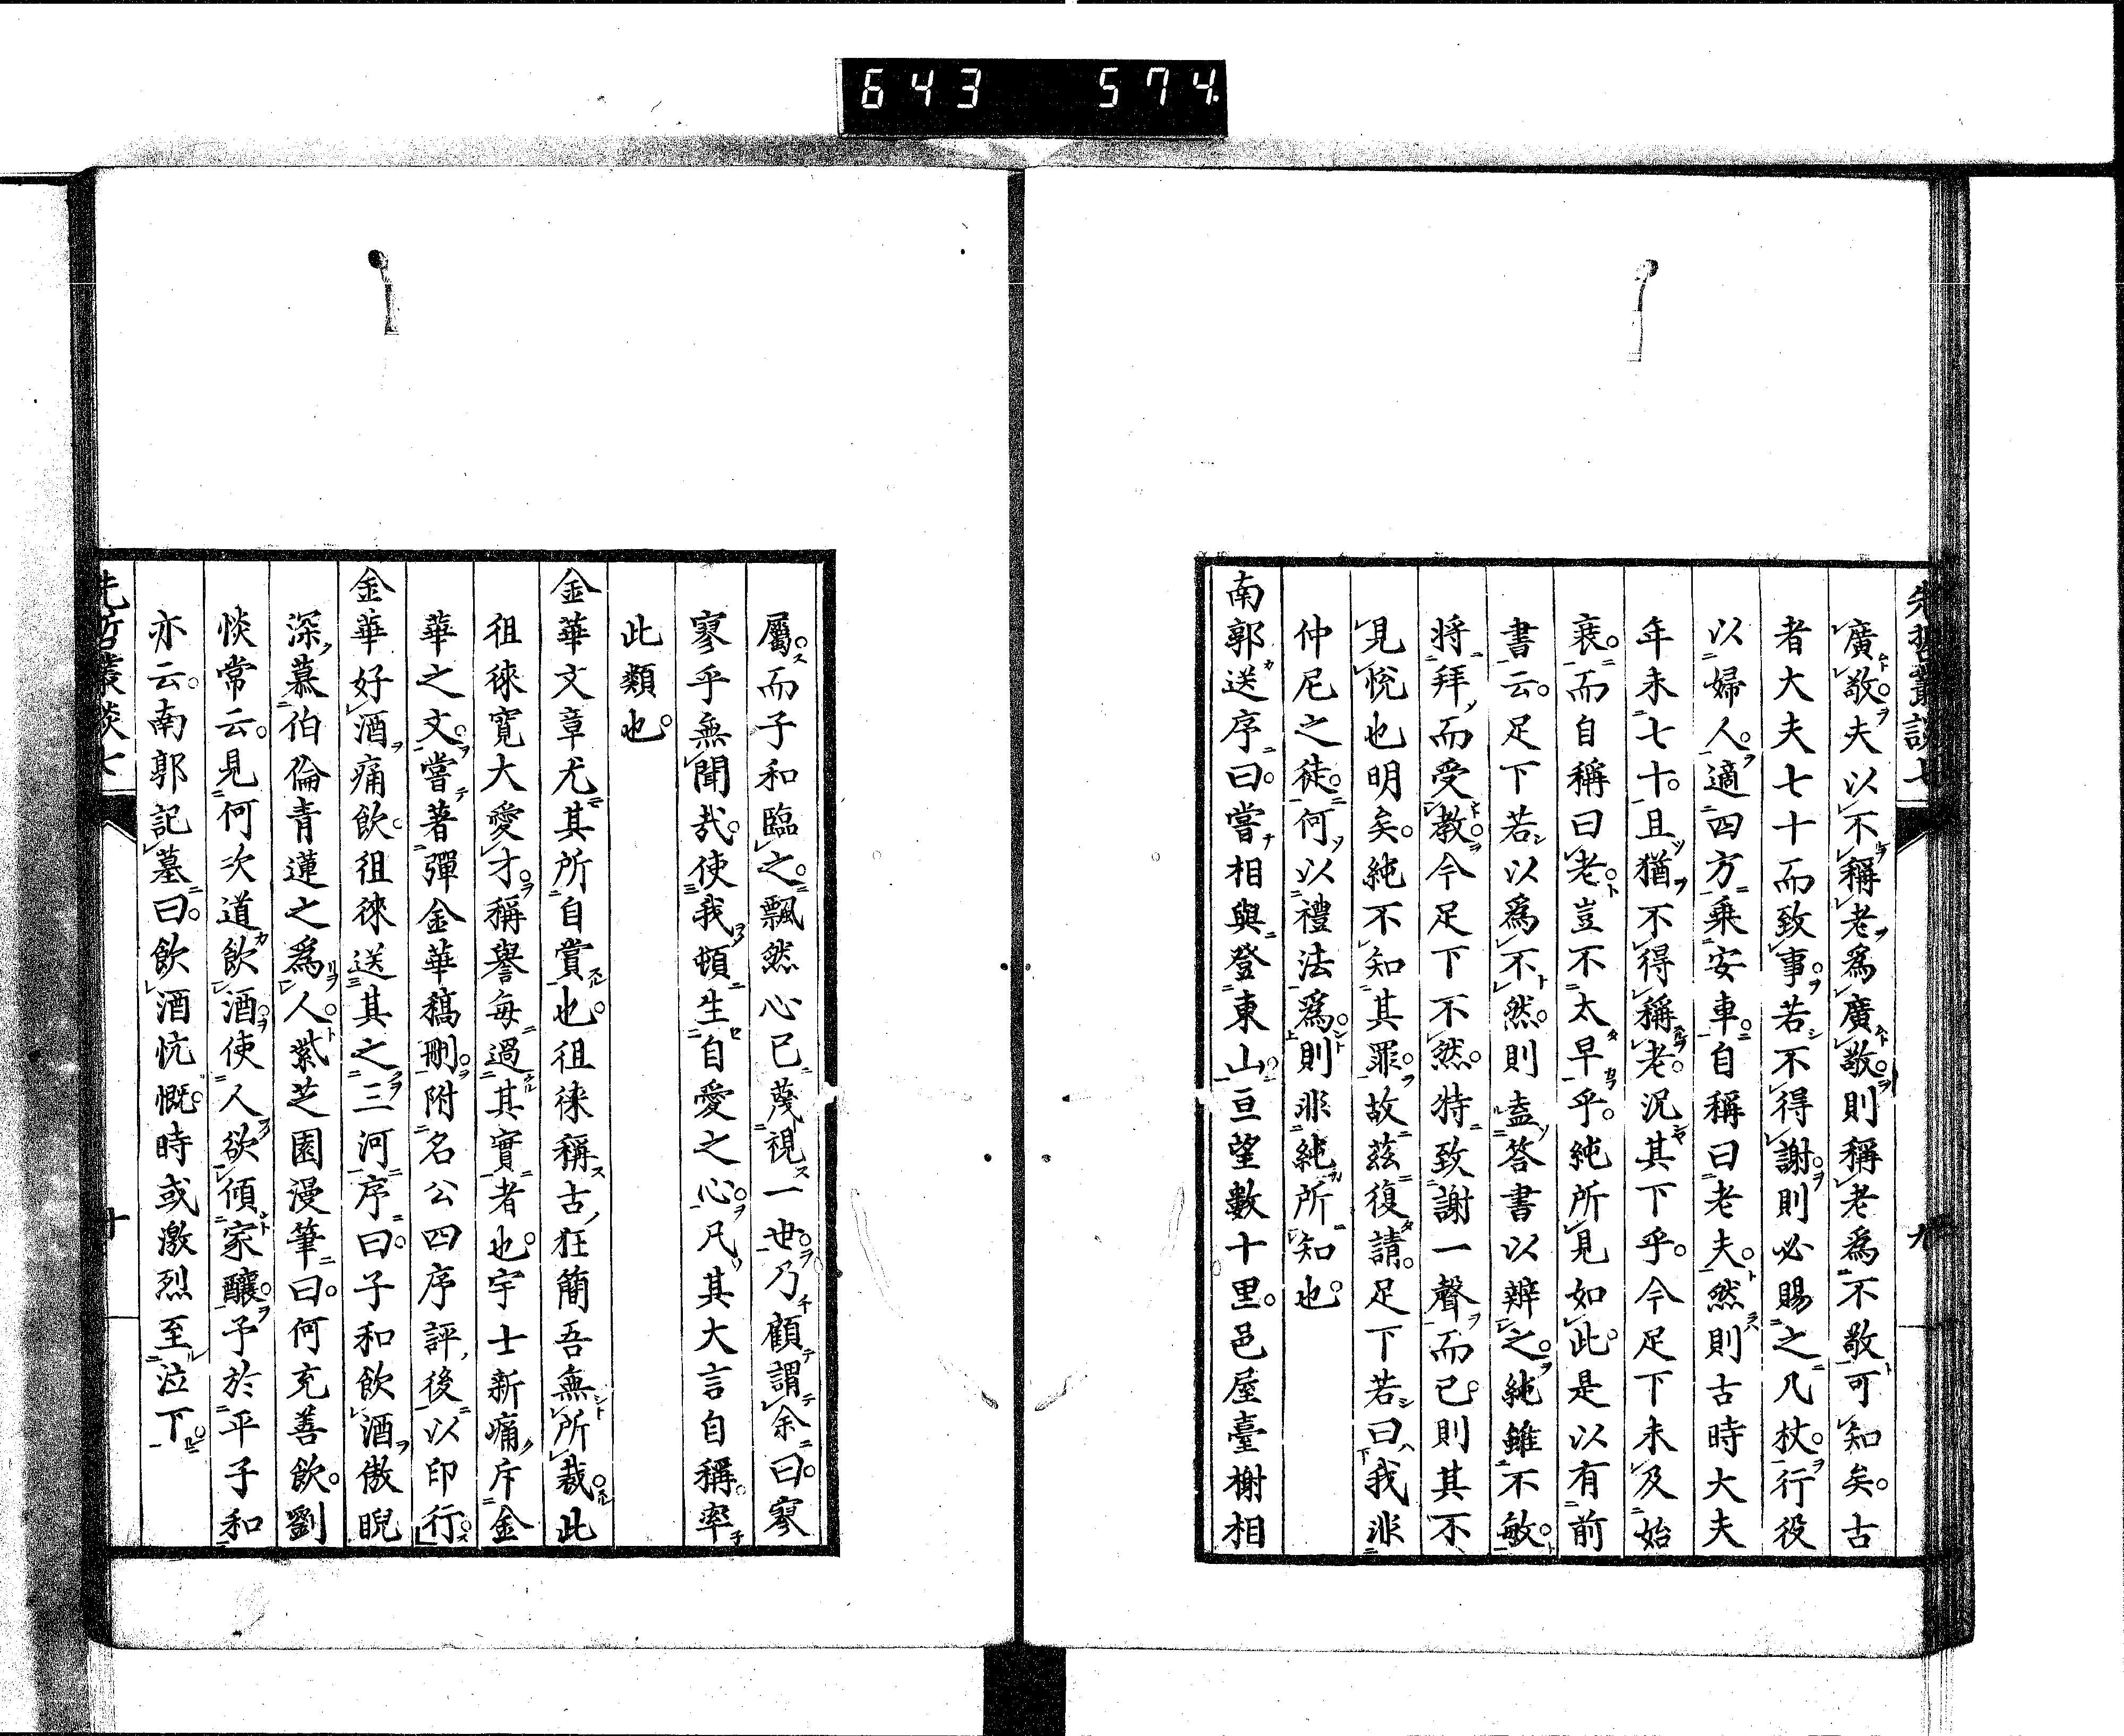 643 574
先哲叢談七 九
廣敬。夫以不稱老爲廣敬。則稱老爲不敬可知矣。古
者大夫七十而致事。若不得謝。則必賜之几杖。行役
以婦人。適四方乘安車。自稱曰老夫。然則古時大夫
年未七十。且猶不得稱老。況其下乎。今足下未及始
衰。而自稱曰老。豈不太早乎。純所見如此。是以有前
書云。足下若以爲不然。則盍答書以辨之。純雖不敏。
將拜而受教。今足下不然。特致謝一聲而已。則其不
見悅也明矣。純不知其罪。故茲復請。足下若曰我非
仲尼之徒。何以禮法爲。則非純所知也。
南郭送序曰。嘗相與登東山。亘望數十里。邑屋臺榭相
屬。而子和臨之。飄然心已蔑視一世。乃顧謂余曰。寥
寥乎無聞哉。使我頓生自愛之心。凡其大言自稱。率
此類也。
金華文章尤其所自賞也。徂徠稱古狂簡吾無所裁。此
徂徠寬大愛才。稱譽每過其實者也。宇士新痛斥金
華之文。嘗著彈金華稿刪。附名公四序評後以印行。
金華好酒痛飲。徂徠送其之三河序曰。子和飲酒傲睨
深慕伯倫青蓮之爲人。紫芝園漫筆曰。何充善飲。劉
惔常云。見何次道飲酒。使人欲傾家釀。予於平子和
亦云。南郭記墓曰。飲酒忼慨。時或激烈至泣下。
先哲叢談七 十